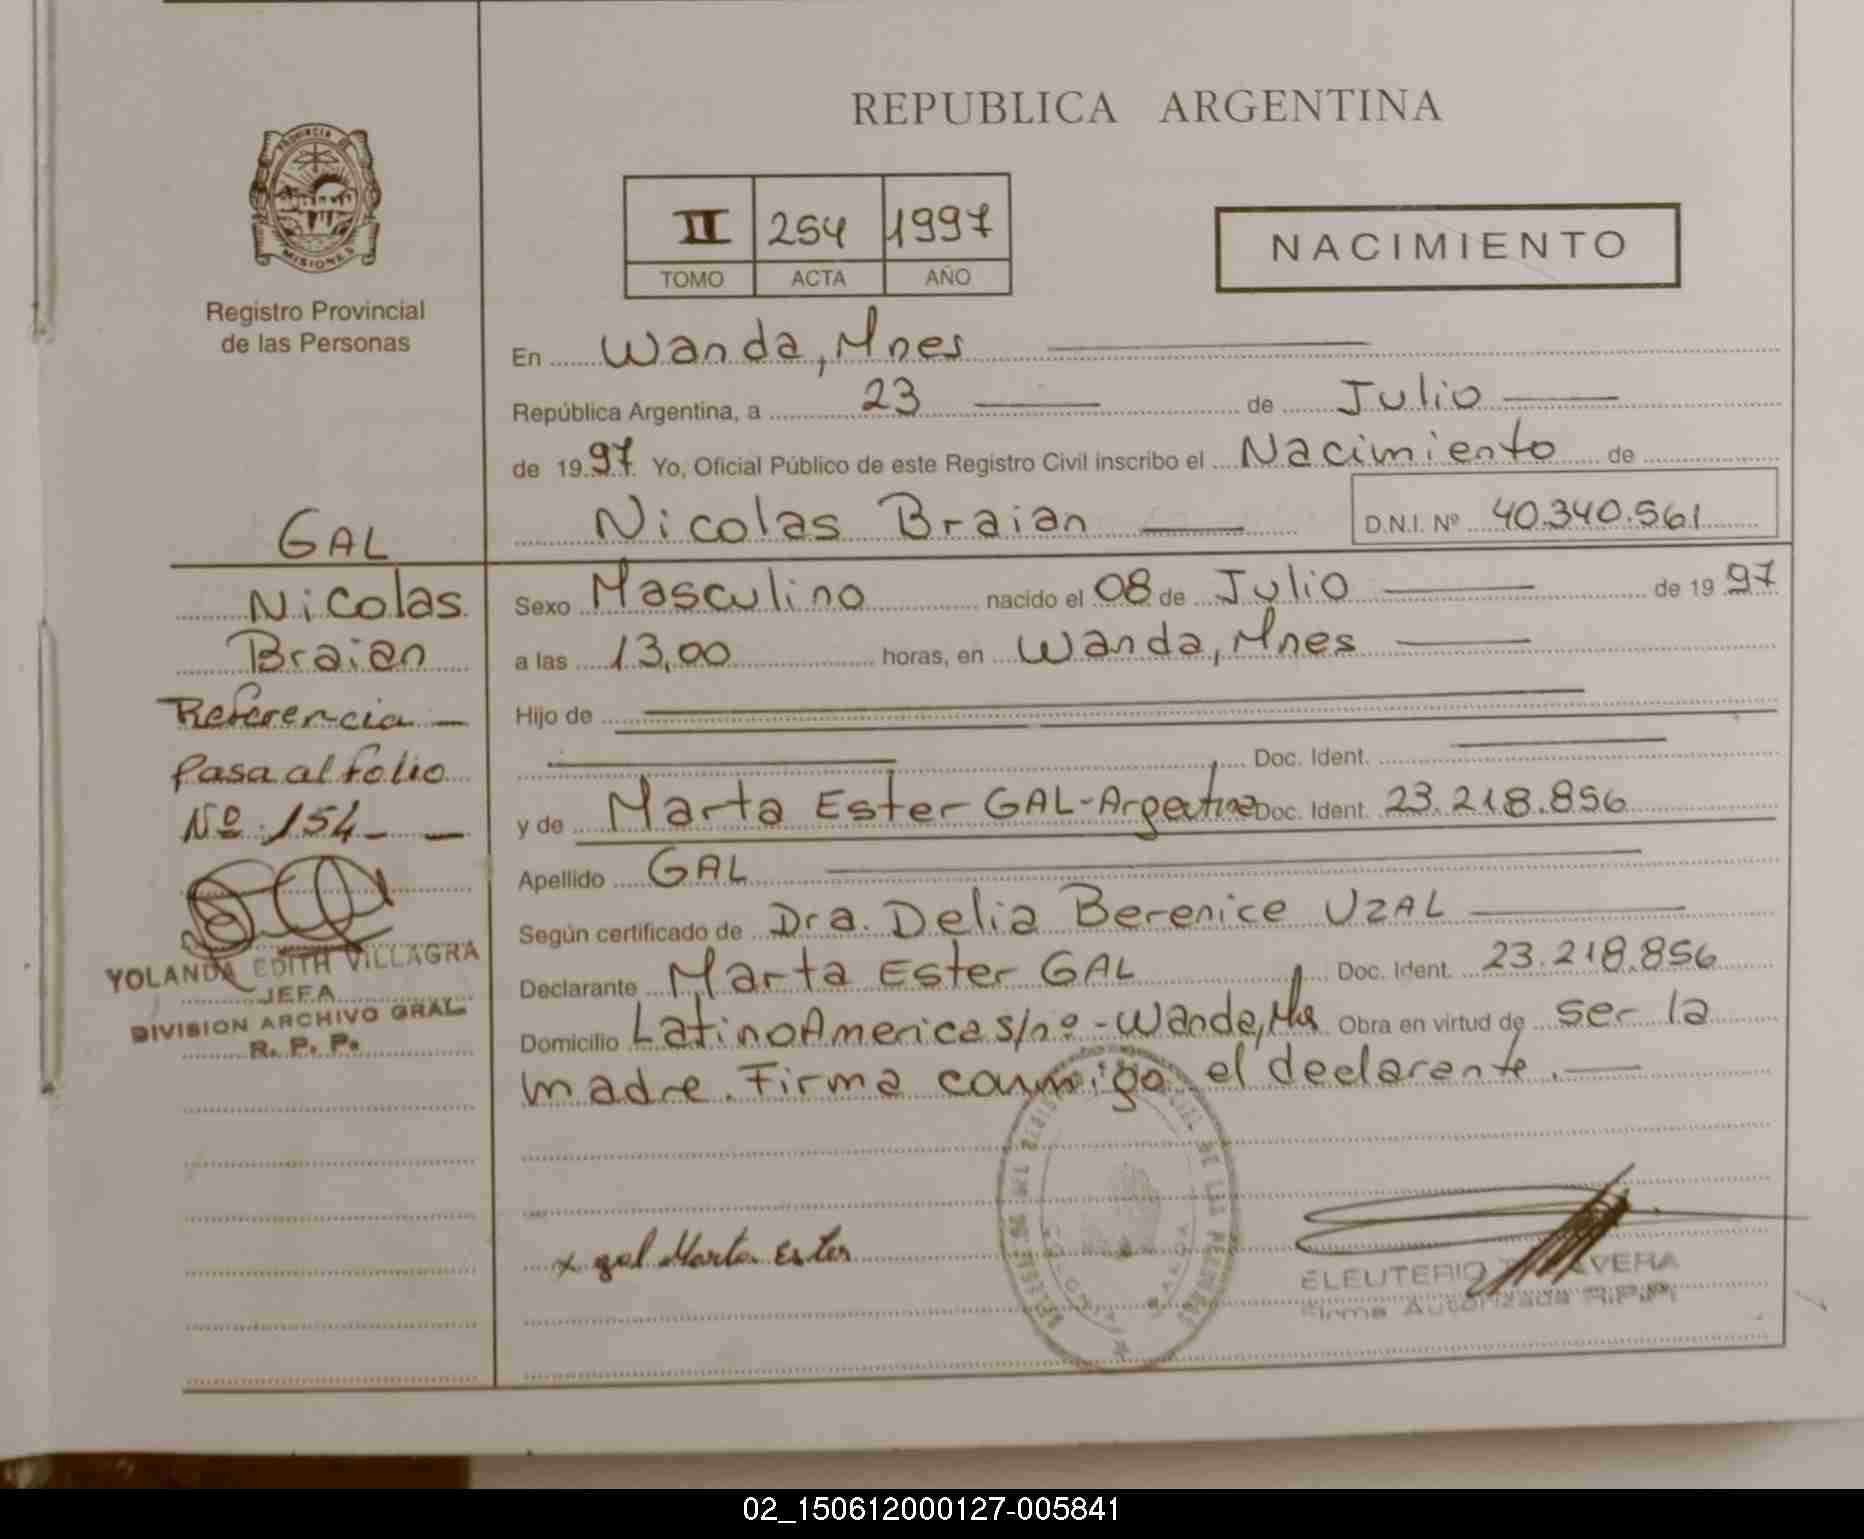 REPUBLICA ARGENTINA
PROVINCIA DE
MISIONES
Registro Provincial
de las Personas
II 254 1997
TOMO ACTA AÑO
NACIMIENTO
En Wanda, Mnes
República Argentina, a 23 de Julio
de 1997. Yo, Oficial Público de este Registro Civil inscribo el Nacimiento de
Nicolas Braian D.N.I. Nº 40.340.561
Sexo Masculino nacido el 08 de Julio de 1997
a las 13,00 horas, en Wanda, Mnes
Hijo de
Doc. Ident.
y de Marta Ester GAL-Argentina Doc. Ident. 23.218.856
Apellido GAL
Según certificado de Dra. Delia Berenice UZAL
Declarante Marta Ester GAL Doc. Ident. 23.218.856
Domicilio LatinoAmerica s/nº - Wanda, Mns Obra en virtud de ser la
madre. Firma conmigo el declarante.
x gal Marta Ester
ELEUTERIO
Firma Autorizada R.P.P.
GAL
Nicolas
Braian
Referencia
Pasa al folio
Nº 154
YOLANDA EDITH VILLAGRA
JEFA
DIVISION ARCHIVO GRAL.
R. P. P.
02_150612000127-005841